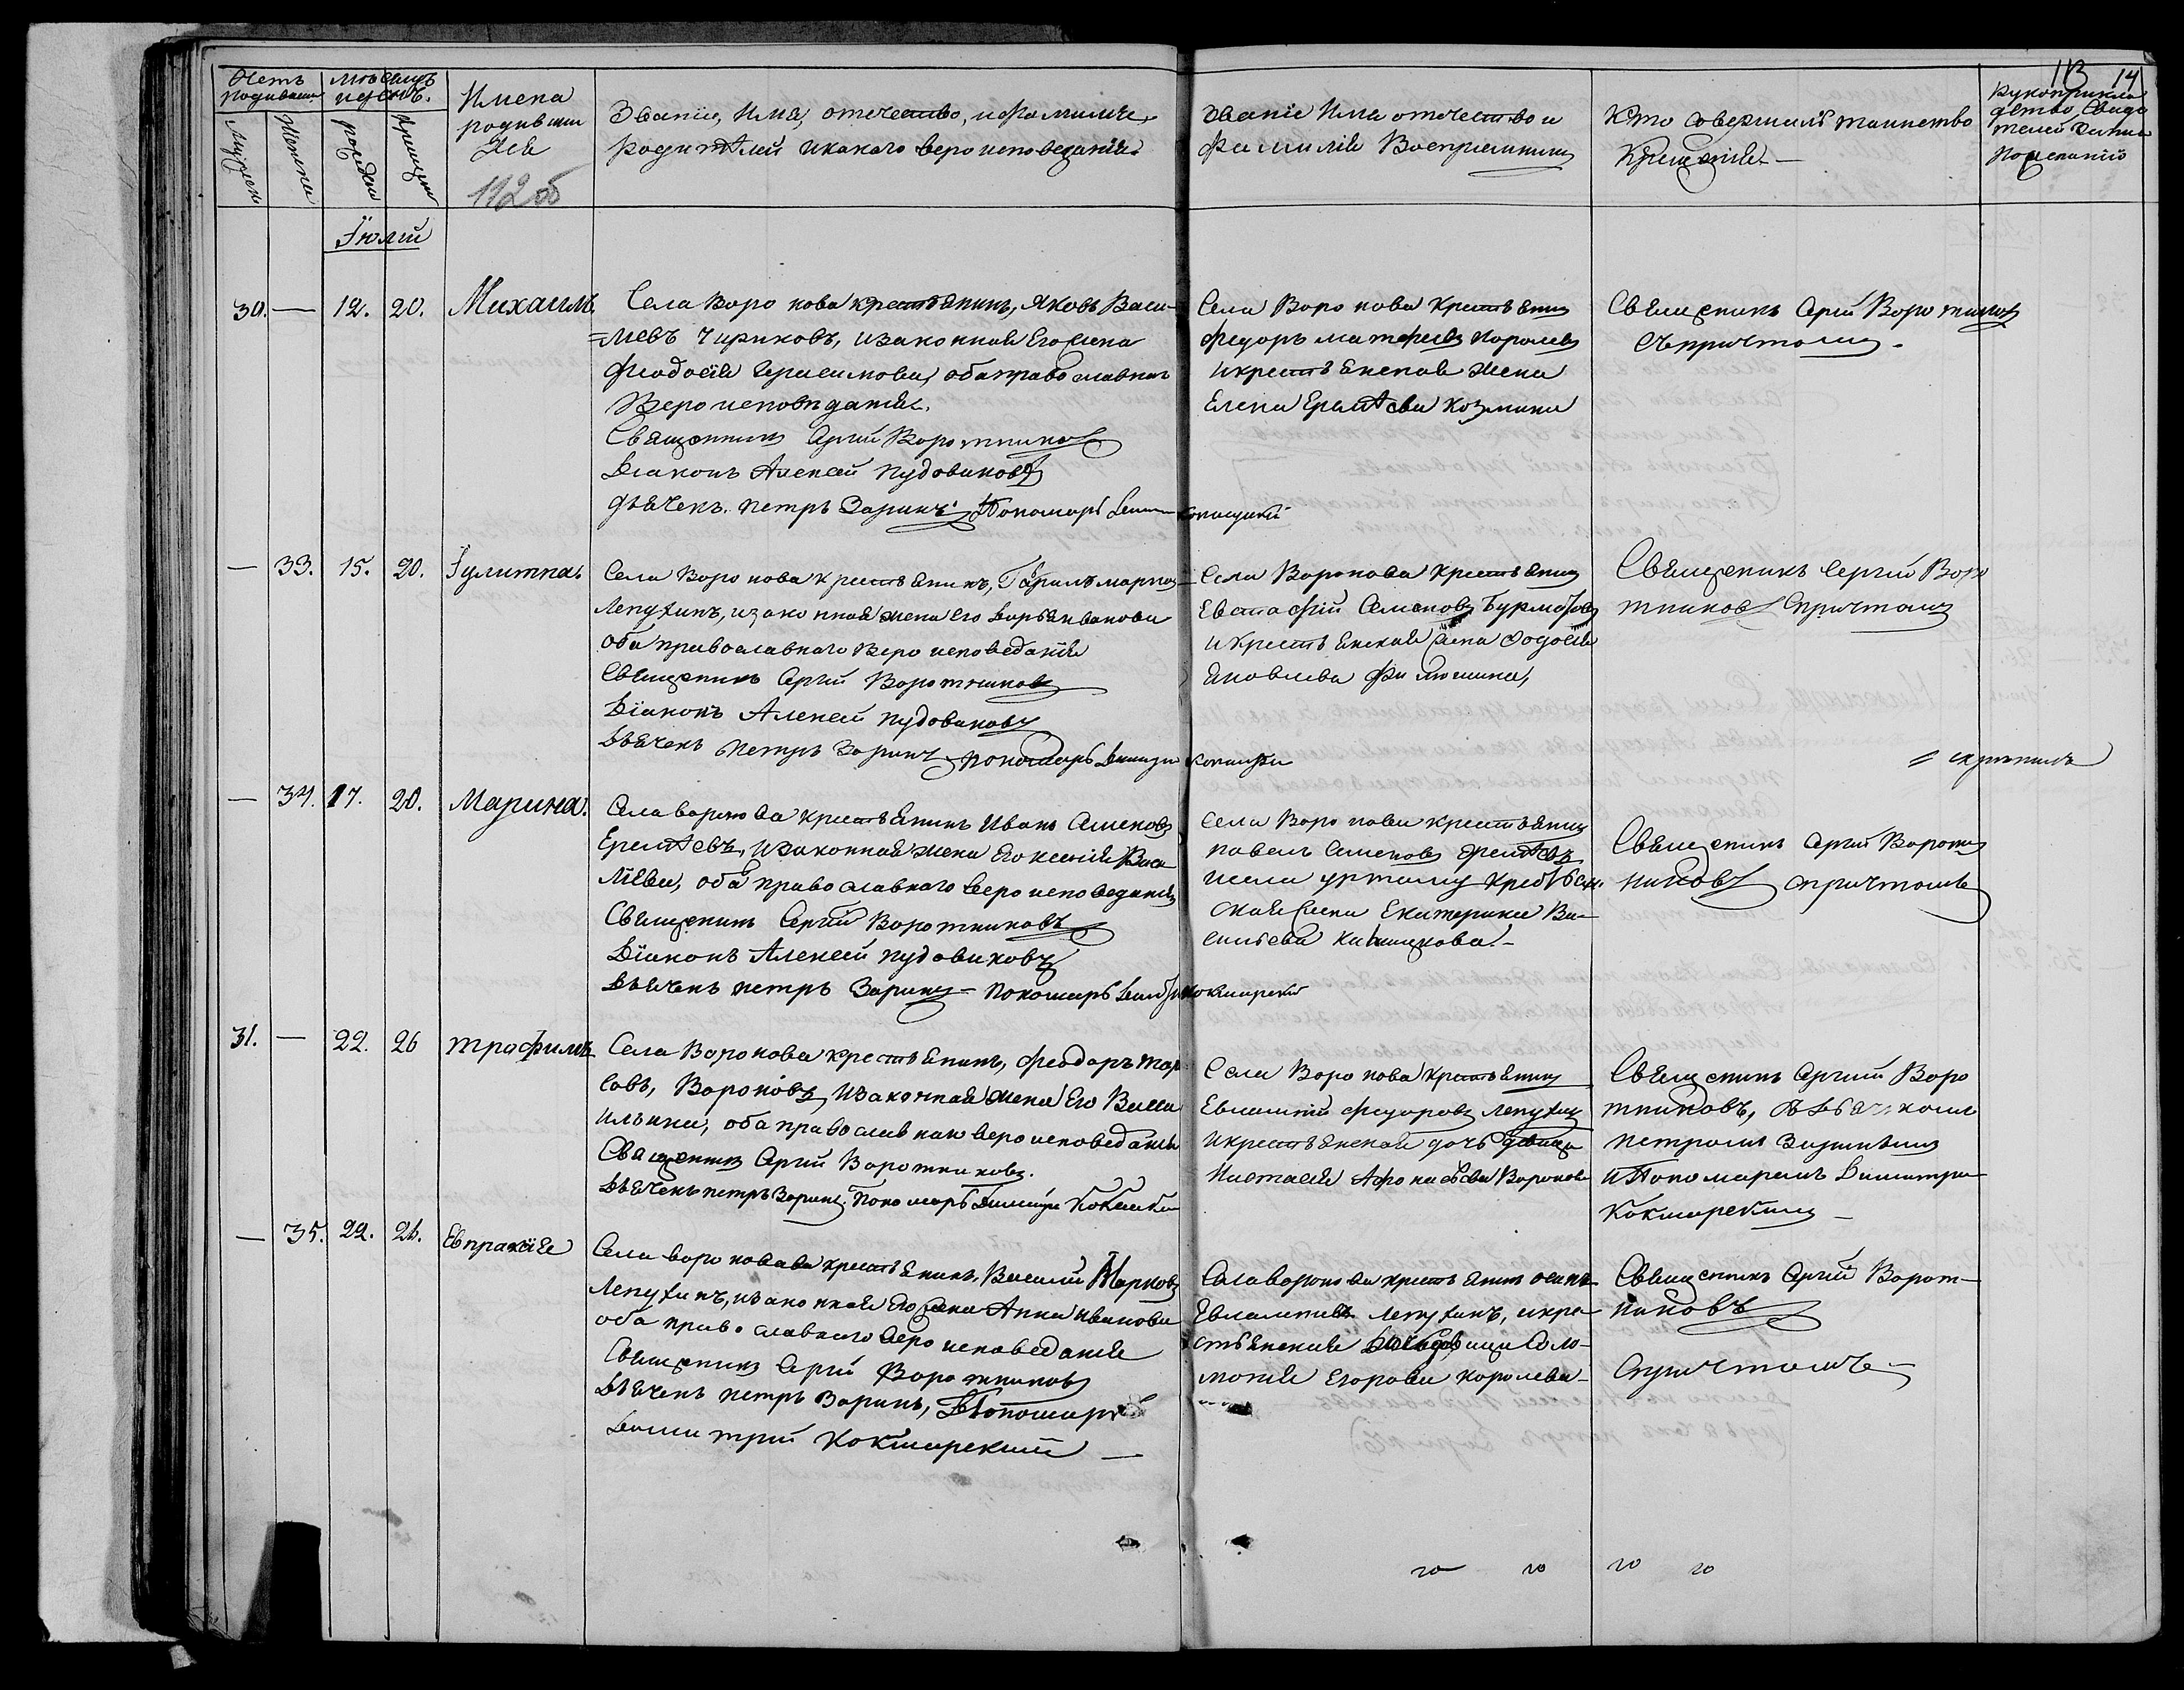 113 14
Счетъ родившихъ
Мѣсяцъ и день.
Мужеска
Женска
рожденія
крещенія
Имена родившихся
112 об
Званіе, Имя, отечество, и фамиліе
родителей и какаго вероисповеданія.
Званіе Имя отечество и
фамиліе Воспріемниковъ
Кто совершилъ таинство
Крещенія
Рукоприкладство Свидетелей записи по желанію
Іюлій
30. — 12. 20. Михаилъ.
Села Воронова крестьянинъ, Яковъ Васи-
=льевъ Чириковъ, и законная Его жена
Феодосія Герасимова, оба православнаго
Вероисповѣданія.
Священникъ Сергій Воротниковъ
Діаконъ Алексей Пудовиковъ
Дьячекъ Петръ Заринъ Пономарь
Села Воронова Крестьянинъ
Федоръ Матфеевъ Королевъ
и крестьянская жена
Елена Ермолаева Козмина
Священникъ Сергій Воротниковъ
съ причтомъ
— 33. 15. 20. Іулитта.
Села Воронова крестьянинъ, Гаврилъ Марковъ
Лепухинъ, и законная жена его Дарья Иванова
оба православнаго вероисповеданія
Священникъ Сергій Воротниковъ
Діаконъ Алексей Пудовиковъ
Дьячекъ Петръ Заринъ Пономарь
Села Воронова Крестьянинъ
Евстафій Семеновъ
и крестьянская жена Федосія
Яковлева
Священникъ Сергій Воро
тниковъ съ причтомъ
скрепилъ
— 34. 17. 20. Марина.
Села Воронова крестьянинъ Иванъ Семеновъ
Еремѣевъ, и законная жена Его Ксенія Васи
льева, оба православнаго вероисповеданія
Священникъ Сергій Воротниковъ
Діаконъ Алексей Пудовиковъ
Дьячекъ Петръ Заринъ Пономарь Димитрій Кокшарскій
Села Воронова крестьянинъ
Павелъ Семеновъ Еремѣевъ
и села Уртаму крестьян.
ская жена Екатерина Ва-
сильева
Священникъ Сергій Воротни
никовъ с причтомъ
31. — 22. 26 Трофимъ
Села Воронова крестьянинъ, Феодоръ Тар
совъ, Вороновъ, и законная жена Его Васса
Ильина, оба православнаго вероисповеданія
Священникъ Сергій Воротниковъ.
Дьячекъ Петръ Заринъ, Пономарь Димитрій
Села Воронова Крестьянинъ
Евлампій Федоровъ Лепухинъ
и крестьянская дочь девица
Настасія Афонасьева Воронова
Священникъ Сергій Воро
тниковъ, съ дьячкомъ
Петромъ Заринымъ
и Пономаремъ Димитріемъ
Кокшарскимъ
— 35. 22. 26. Евпраксія
Села Воронова крестьянинъ, Василій Марковъ
Лепухинъ, и законная Его жена Анна Иванова
оба православнаго вероисповеданія
Священникъ Сергій Воротниковъ
Дьячекъ Петръ Заринъ, Пономарь
Димитрій Кокшарскій
Села Воронова крестьянинъ Осипъ
Евлампіевъ Лепухинъ, и кре-
стьянская дочь девица Соло-
монія Егорова Королева
Священникъ Сергій Ворот-
никовъ
съ причтомъ